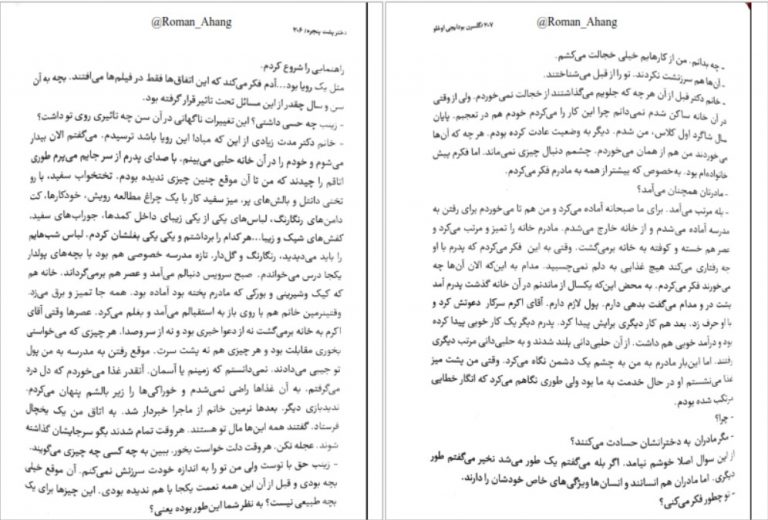 @Roman_Ahang
دختر پشت پنجره/ ۲۰۶
راهنمایی را شروع کردم.
مثل یک رویا بود...آدم فکر می‌کند که این اتفاق‌ها فقط در فیلم‌ها می‌افتند. بچه به آن
سن و سال چقدر از این مسائل تحت تاثیر قرار گرفته بود.
- زینب چه حسی داشتی؟ این تغییرات ناگهانی در آن سن چه تاثیری روی تو داشت؟
- خانم دکتر مدت زیادی از این که مبادا این رویا باشد ترسیدم. می‌گفتم الان بیدار
می‌شوم و خودم را در آن خانه حلبی می‌بینم. با صدای پدرم از سر جایم می‌پرم طوری
اتاقم را چیدند که من تا آن موقع چنین چیزی ندیده بودم. تختخواب سفید، با رو
تختی دانتل و بالش‌های پر، میز سفید کار با یک چراغ مطالعه رویش، خودکارها، کت
دامن‌های رنگارنگ، لباس‌های یکی از یکی زیبای داخل کمدها، جوراب‌های سفید،
کفش‌های شیک و زیبا...هر کدام را برداشتم و یکی یکی بغلشان کردم. لباس شب‌هایم
را باید می‌دیدید، رنگارنگ و گل‌دار. تازه مدرسه خصوصی هم بود با بچه‌های پولدار
یکجا درس می‌خواندم. صبح سرویس دنبالم می‌آمد و عصر هم برمی‌گرداند. خانه هم
که کیک و شیرینی و بورکی که مادرم پخته بود آماده بود. همه جا تمیز و برق می‌زد.
وقتی نرمین خانم هم با روی باز به استقبالم می‌آمد و بغلم می‌کرد. عصرها وقتی آقای
اکرم به خانه برمی‌گشت نه از دعوا خبری بود و نه از سر و صدا. هر چیزی که می‌خواستی
بخوری مقابلت بود و هر چیزی هم نه پشت سرت. موقع رفتن به مدرسه به من پول
تو جیبی می‌دادند. نمی‌دانستم که زمینم یا آسمان. آنقدر غذا می‌خوردم که دل درد
می‌گرفتم. به آن غذاها راضی نمی‌شدم و خوراکی‌ها را زیر بالشم پنهان می‌کردم.
ندیدبازی دیگر. بعدها نرمین خانم از ماجرا خبردار شد. به اتاق من یک یخچال
فرستاد. گفتند همه این‌ها مال تو هستند. هر وقت تمام شدند بگو سرجایشان گذاشته
شوند. عجله نکن. هر وقت دلت خواست بخور. ببین به چه کسی چه چیزی می‌گویند.
- زینب حق با توست ولی من تو را به اندازه خودت سرزنش نمی‌کنم. آن موقع خیلی
بچه بودی و قبل از آن این همه نعمت یکجا با هم ندیده بودی. این چیزها برای یک
بچه طبیعی نیست؟ به نظر شما این‌طور بوده یعنی؟
@Roman_Ahang
۲۰۷/گلسرن بودایجی اوغلو
- چه بدانم. من از کارهایم خیلی خجالت می‌کشم.
- آن‌ها هم سرزنشت نکردند. تو را از قبل می‌شناختند.
- خانم دکتر قبل از آن هر چه که جلویم می‌گذاشتند از خجالت نمی‌خوردم. ولی از وقتی
در آن خانه ساکن شدم نمی‌دانم چرا این کار را می‌کردم خودم هم در تعجبم. پایان
سال شاگرد اول کلاس، من شدم. دیگر به وضعیت عادت کرده بودم. هر چه که آن‌ها
می‌خوردند من هم از همان می‌خوردم. چشمم دنبال چیزی نمی‌ماند. اما فکرم پیش
خانواده‌ام بود. به‌خصوص که بیشتر از همه به مادرم فکر می‌کردم.
- مادرتان همچنان می‌آمد؟
- بله مرتب می‌آمد. برای ما صبحانه آماده می‌کرد و من هم تا می‌خوردم برای رفتن به
مدرسه آماده می‌شدم و از خانه خارج می‌شدم. مادرم خانه را تمیز و مرتب می‌کرد و
عصر هم خسته و کوفته به خانه برمی‌گشت. وقتی به این فکر می‌کردم که پدرم با او
چه رفتاری می‌کند هیچ غذایی به دلم نمی‌چسبید. مدام به این‌که الان آن‌ها چه
می‌خورند فکر می‌کردم. به محض این‌که یکسال از ماندنم در آن خانه گذشت پدرم آمد
پشت در و مدام می‌گفت بدهی دارم. پول لازم دارم. آقای اکرم سرکار دعوتش کرد و
با او حرف زد. بعد هم کار دیگری برایش پیدا کرد. پدرم دیگر یک کار خوبی پیدا کرده
بود و درآمد خوبی هم داشت. از آن حلبی‌دانی بلند شدند و به حلبی‌دانی مرتب دیگری
رفتند. اما این‌بار مادرم به من به چشم یک دشمن نگاه می‌کرد. وقتی من پشت میز
غذا می‌نشستم او در حال خدمت به ما بود ولی طوری نگاهم می‌کرد که انگار خطایی
مرتکب شده بودم.
- چرا؟
- مگر مادران به دخترانشان حسادت می‌کنند؟
از این سوال اصلا خوشم نیامد. اگر بله می‌گفتم یک طور می‌شد نخیر می‌گفتم طور
دیگری. اما مادران هم انسانند و انسان‌ها ویژگی‌های خاص خودشان را دارند.
- تو چطور فکر می‌کنی؟